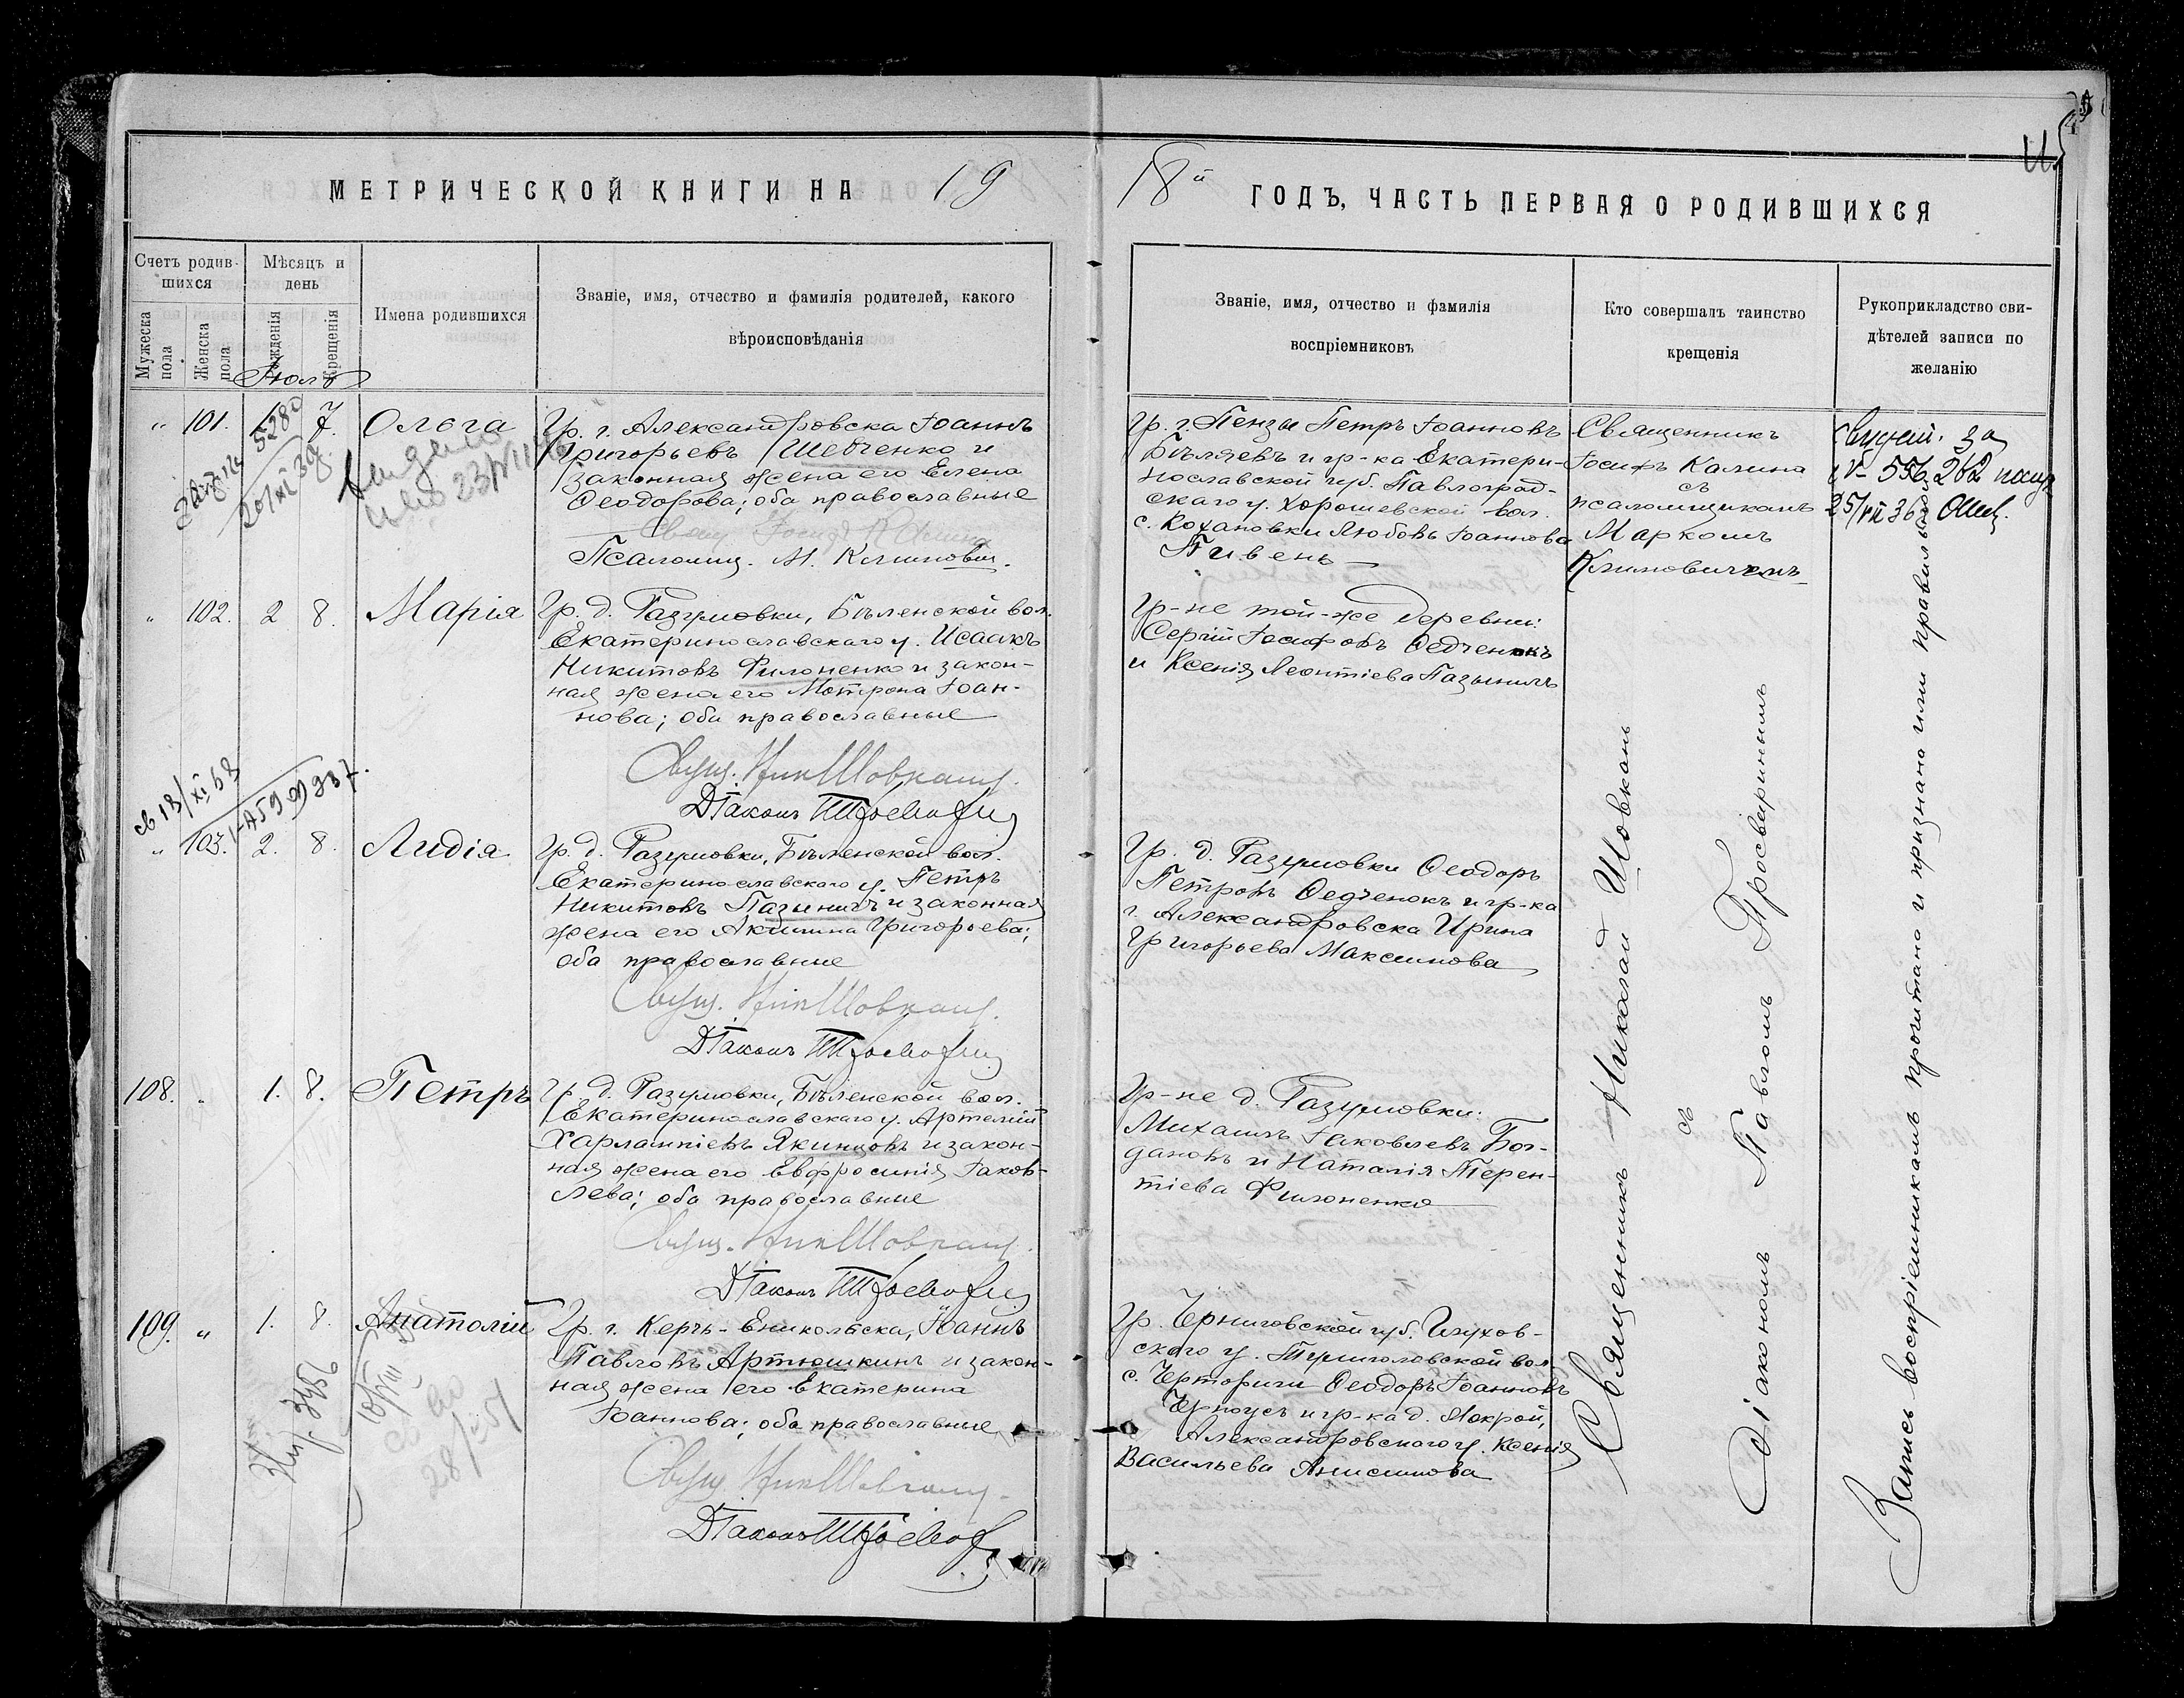 МЕТРИЧЕСКОЙ КНИГИ НА 19
18й ГОДЪ, ЧАСТЬ ПЕРВАЯ О РОДИВШИХСЯ
Счетъ родив-
шихся
Мужеска пола
Женска пола
Мѣсяцъ и
день
Рожденія
Крещенія
Имена родившихся
Званіе, имя, отчество и фамилія родителей, какого
вѣроисповѣданія
Званіе, имя, отчество и фамилія
воспріемниковъ
Кто совершалъ таинство
крещенія
Рукоприкладство сви-
дѣтелей записи по
желанію
Іюль
„ 101. 7. Ольга
Гр. г. Александровска Іоаннъ
Григорьевъ Шевченко и
законная жена его Елена
Ѳеодорова; оба православные
Псаломщ. М. Климович.
Гр. г. Пензы Петръ Іоанновъ
Бѣляевъ и гр-ка Екатери-
нославской губ. Павлоград-
скаго у. Хорошевской вол.
с. Кохановки Любовь Іоаннова
Пивень
Священникъ
Іосифъ Калина
съ
псаломщикомъ
Маркомъ
Климовичемъ
„ 102. 2 8. Марія
Гр. д. Разумовки, Бѣленской вол.
Екатеринославскаго у. Исаакъ
Никитовъ Филоненко и закон-
ная жена его Мотрона Іоан-
нова; оба православные
Свящ. Ник Шовкань
Діаконъ
Гр-не той-же деревни:
Сергій Іосифовъ Ѳедченокъ
и Ксенія Леонтіева Пазыничъ
св 13/XI 63
„ 103. 2. 8. Лидія
Гр. д. Разумовки, Бѣленской вол.
Екатеринославскаго у. Петръ
Никитовъ Пазыничъ и законная
жена его Акилина Григорьева;
оба православные
Свящ. Ник Шовкань
Діаконъ
Гр. д. Разумовки Ѳеодоръ
Петровъ Ѳедченокъ и гр-ка
г. Александровска Ирина
Григорьева Максимова
108. „ 1. 8. Петръ
Гр. д. Разумовки, Бѣленской вол.
Екатеринославскаго у. Артемій
Харлампіевъ Якимцовъ и закон-
ная жена его Евфросинія Іаков-
лева; оба православные
Свящ. Ник Шовкань
Діаконъ
Гр-не д. Разумовки:
Михаилъ Іаковлевъ Бог-
дановъ и Наталія Терен-
тіева Филоненко
109. „ 1. 8. Анатолій
Гр. г. Керчь-Еникольска, Іоаннъ
Павловъ Артюшкинъ и закон-
ная жена его Екатерина
Іоаннова; оба православные
Свящ. Ник Шовкань
Діаконъ
Гр. Черниговской губ. Глухов-
скаго у. Тулиголовской вол.
с. Черториги Ѳеодоръ Іоанновъ
Черноусъ и гр-ка д. Мокрой,
Александровскаго у. Ксенія
Васильева Анисимова
Священникъ Николай Шовкань
съ
Діакономъ Павломъ Просверниннымъ
Запись воспріемникамъ прочитана и признана ими правильною